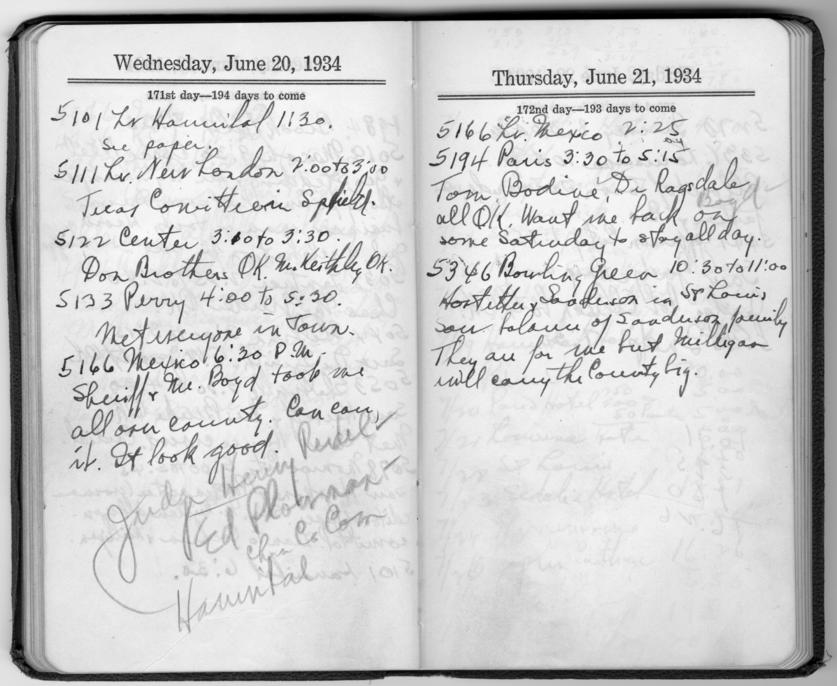 Wednesday, June 20, 1934
171st day—194 days to come
5101 Lv. Hannibal 11:30.
See paper.
5111 Lv. New London 2:00 to 3:00
Texas Committee in Spfield.
5122 Center 3:10 to 3:30.
Don Brothers OK. McKeithley OK.
5133 Perry 4:00 to 5:20.
Met everyone in Town.
5166 Mexico 6:20 P.M.
Sheriff & Mr. Boyd took me
all over county. Can carry
it. It look good.
Judge Henry
Ed Plowman
Chm Co Com
Hannibal
Thursday, June 21, 1934
172nd day—193 days to come
5166 Lv. Mexico 2:25
5194 Paris 3:30 to 5:15
Tom Bodine, Dr Ragsdale,
Boyd
all O.K. Want me back on
some Saturday to stay all day.
5346 Bowling Green 10:30 to 11:00
Hostetter & Sanderson in St Louis
saw balance of Sanderson family
They are for me but Milligan
will carry the County big.